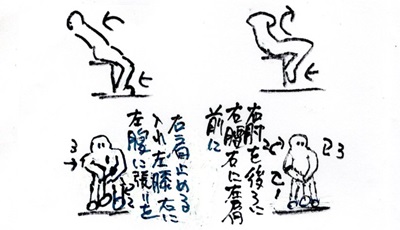 右肘を後ろに
右腰右に左肩
前に
左腰に張りを
入れ左膝右に
右肩止める
3
2
3
1